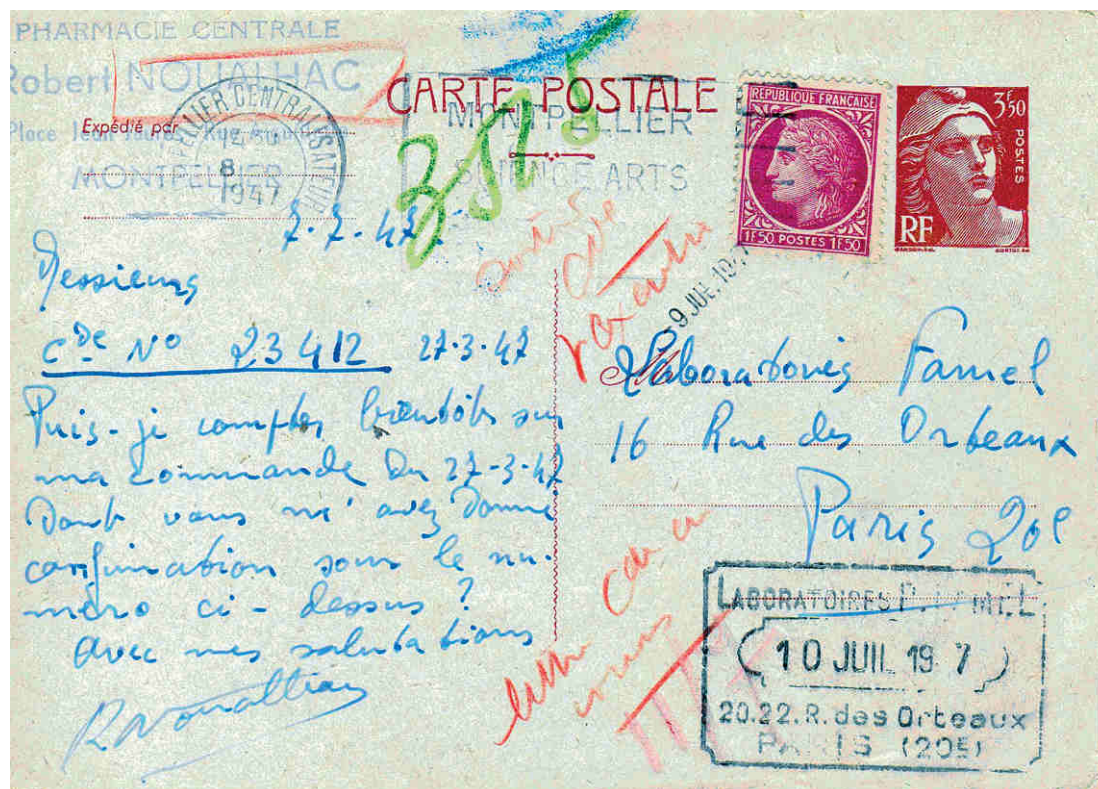 PHARMACIE CENTRALE
Robert NOUALHAC
Place Jean Jaurès, Rue
MONTPELLIER
Expédié par
CARTE POSTALE
MONTPELLIER CENTRALISATEUR
8
1947
MONTPELLIER
SCIENCE ARTS
REPUBLIQUE FRANÇAISE
1F50 POSTES 1F50
3F,50
POSTES
RF
-9 JUIL 194
7-7-47
Messieurs
Cde No 23412 27-3-47
Puis-je compter bientôt sur
ma commande du 27-3-47
Dont vous m'avez donné
confirmation sous le nu-
méro ci-dessus ?
Avec mes salutations
R Noualhac
M
Laboratoires Famel
16 Rue des Orteaux
Paris 20e
LABORATOIRES P. FAMEL
10 JUIL 19 7
20.22.R. des Orteaux
PARIS (20E)